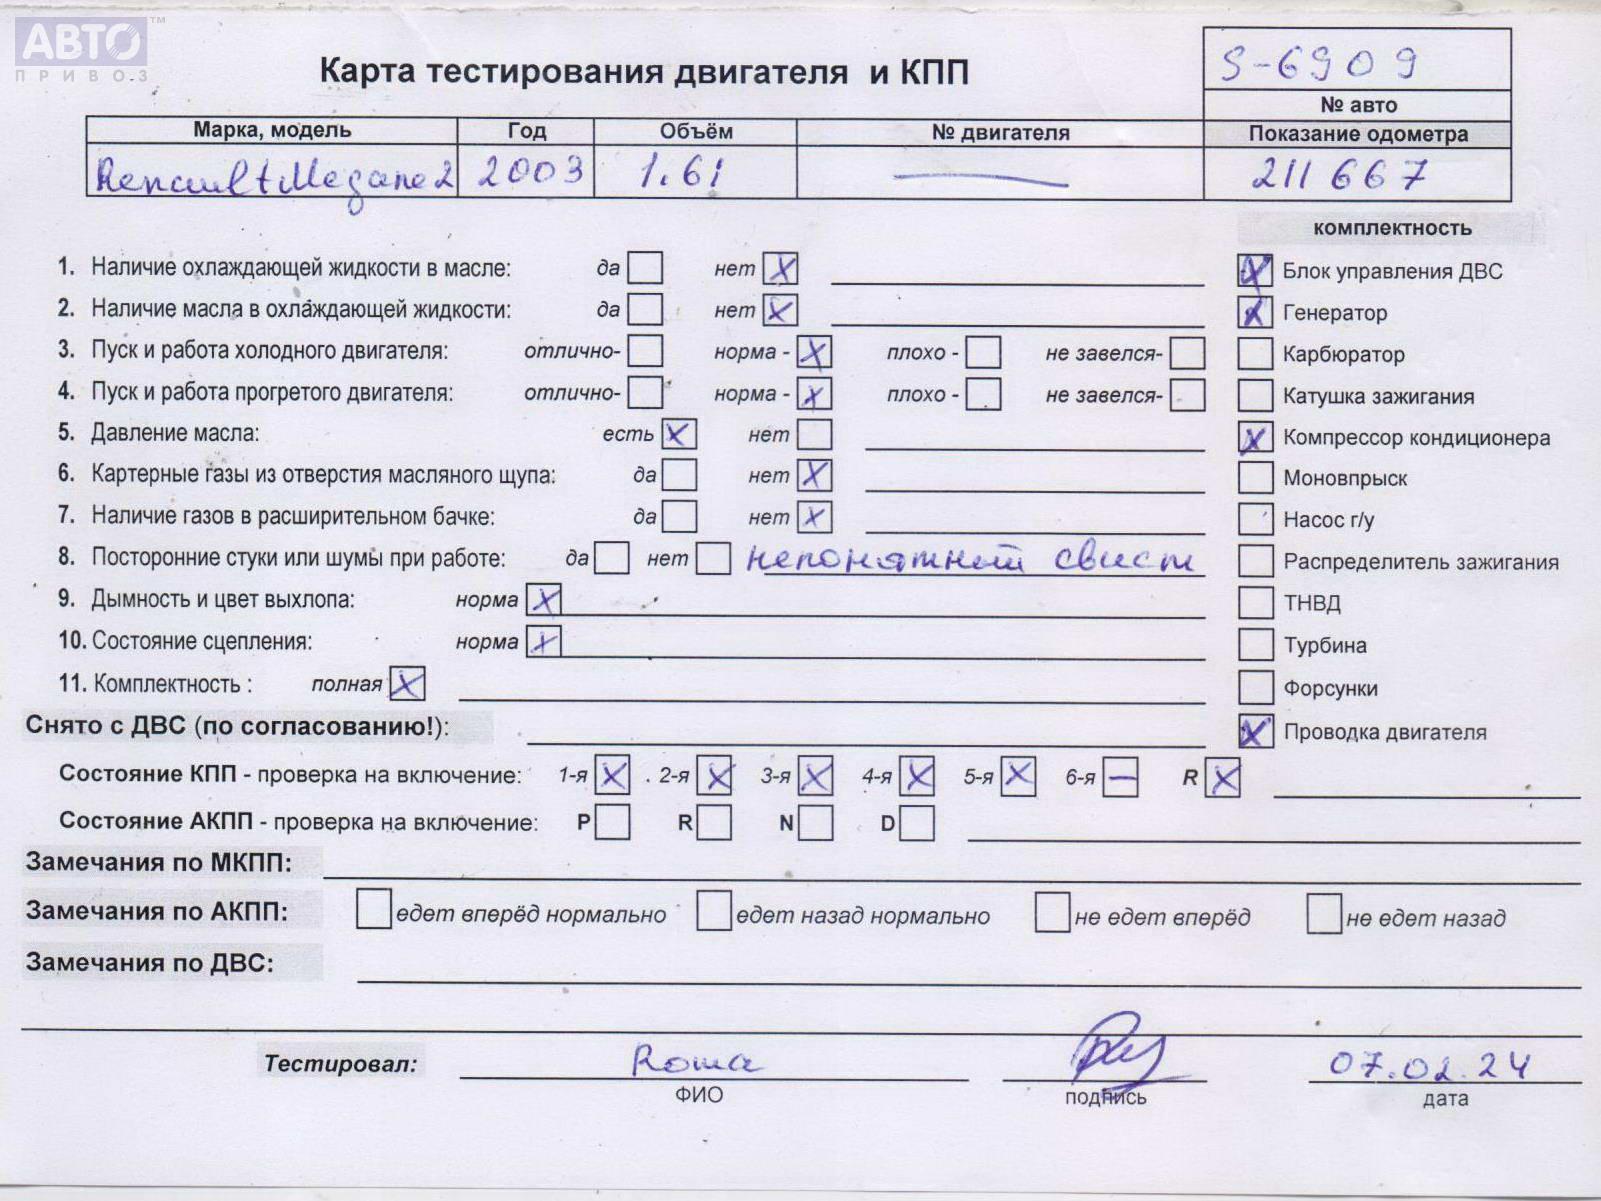 АВТО™
ПРИВОЗ
Карта тестирования двигателя и КПП
S-6909
№ авто
Марка, модель Год Объём № двигателя Показание одометра
Renault Megane 2 2003 1.6i — 211 667
комплектность
1. Наличие охлаждающей жидкости в масле: да нет X Блок управления ДВС X
2. Наличие масла в охлаждающей жидкости: да нет X Генератор X
3. Пуск и работа холодного двигателя: отлично- норма - X плохо - не завелся- Карбюратор
4. Пуск и работа прогретого двигателя: отлично- норма - X плохо - не завелся- Катушка зажигания
5. Давление масла: есть X нет X Компрессор кондиционера
6. Картерные газы из отверстия масляного щупа: да нет X Моновпрыск
7. Наличие газов в расширительном бачке: да нет X Насос г/у
8. Посторонние стуки или шумы при работе: да нет непонятный свист Распределитель зажигания
9. Дымность и цвет выхлопа: норма X ТНВД
10. Состояние сцепления: норма X Турбина
11. Комплектность : полная X Форсунки
Снято с ДВС (по согласованию!): X Проводка двигателя
Состояние КПП - проверка на включение: 1-я X 2-я X 3-я X 4-я X 5-я X 6-я — R X
Состояние АКПП - проверка на включение: P R N D
Замечания по МКПП:
Замечания по АКПП: едет вперёд нормально едет назад нормально не едет вперёд не едет назад
Замечания по ДВС:
Тестировал: Roma 07.02.24
ФИО подпись дата